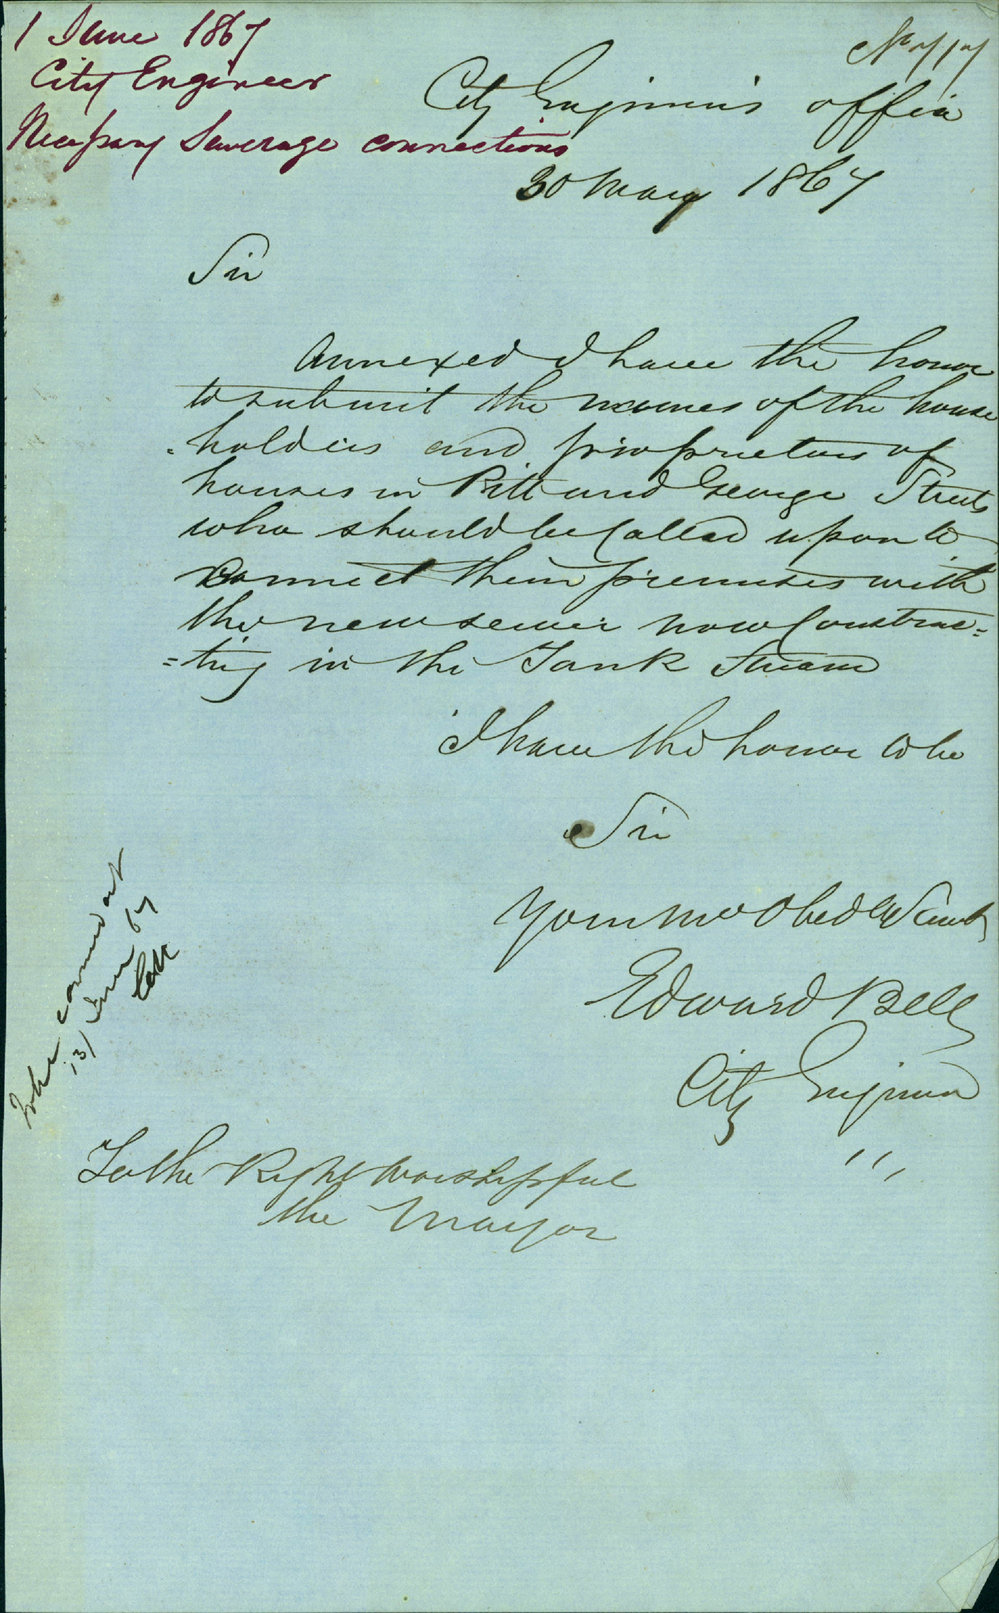 1 June 1867
City Engineer
Necessary Sewerage connections
No 717
City Engineer's office
30 May 1867
Sir
Annexed I have the honor
to submit the names of the house
=holders and proprietors of
houses in Pitt and George Streets
who should be Called upon to
Connect their premises with
the new sewer now Construc=
=ting in the Tank Stream
I have the honor to be
Sir
Your Mo Obed Servt
Edward Bell
City Engineer
To the Right Worshipful
the Mayor
To be carried out
13/ June 67